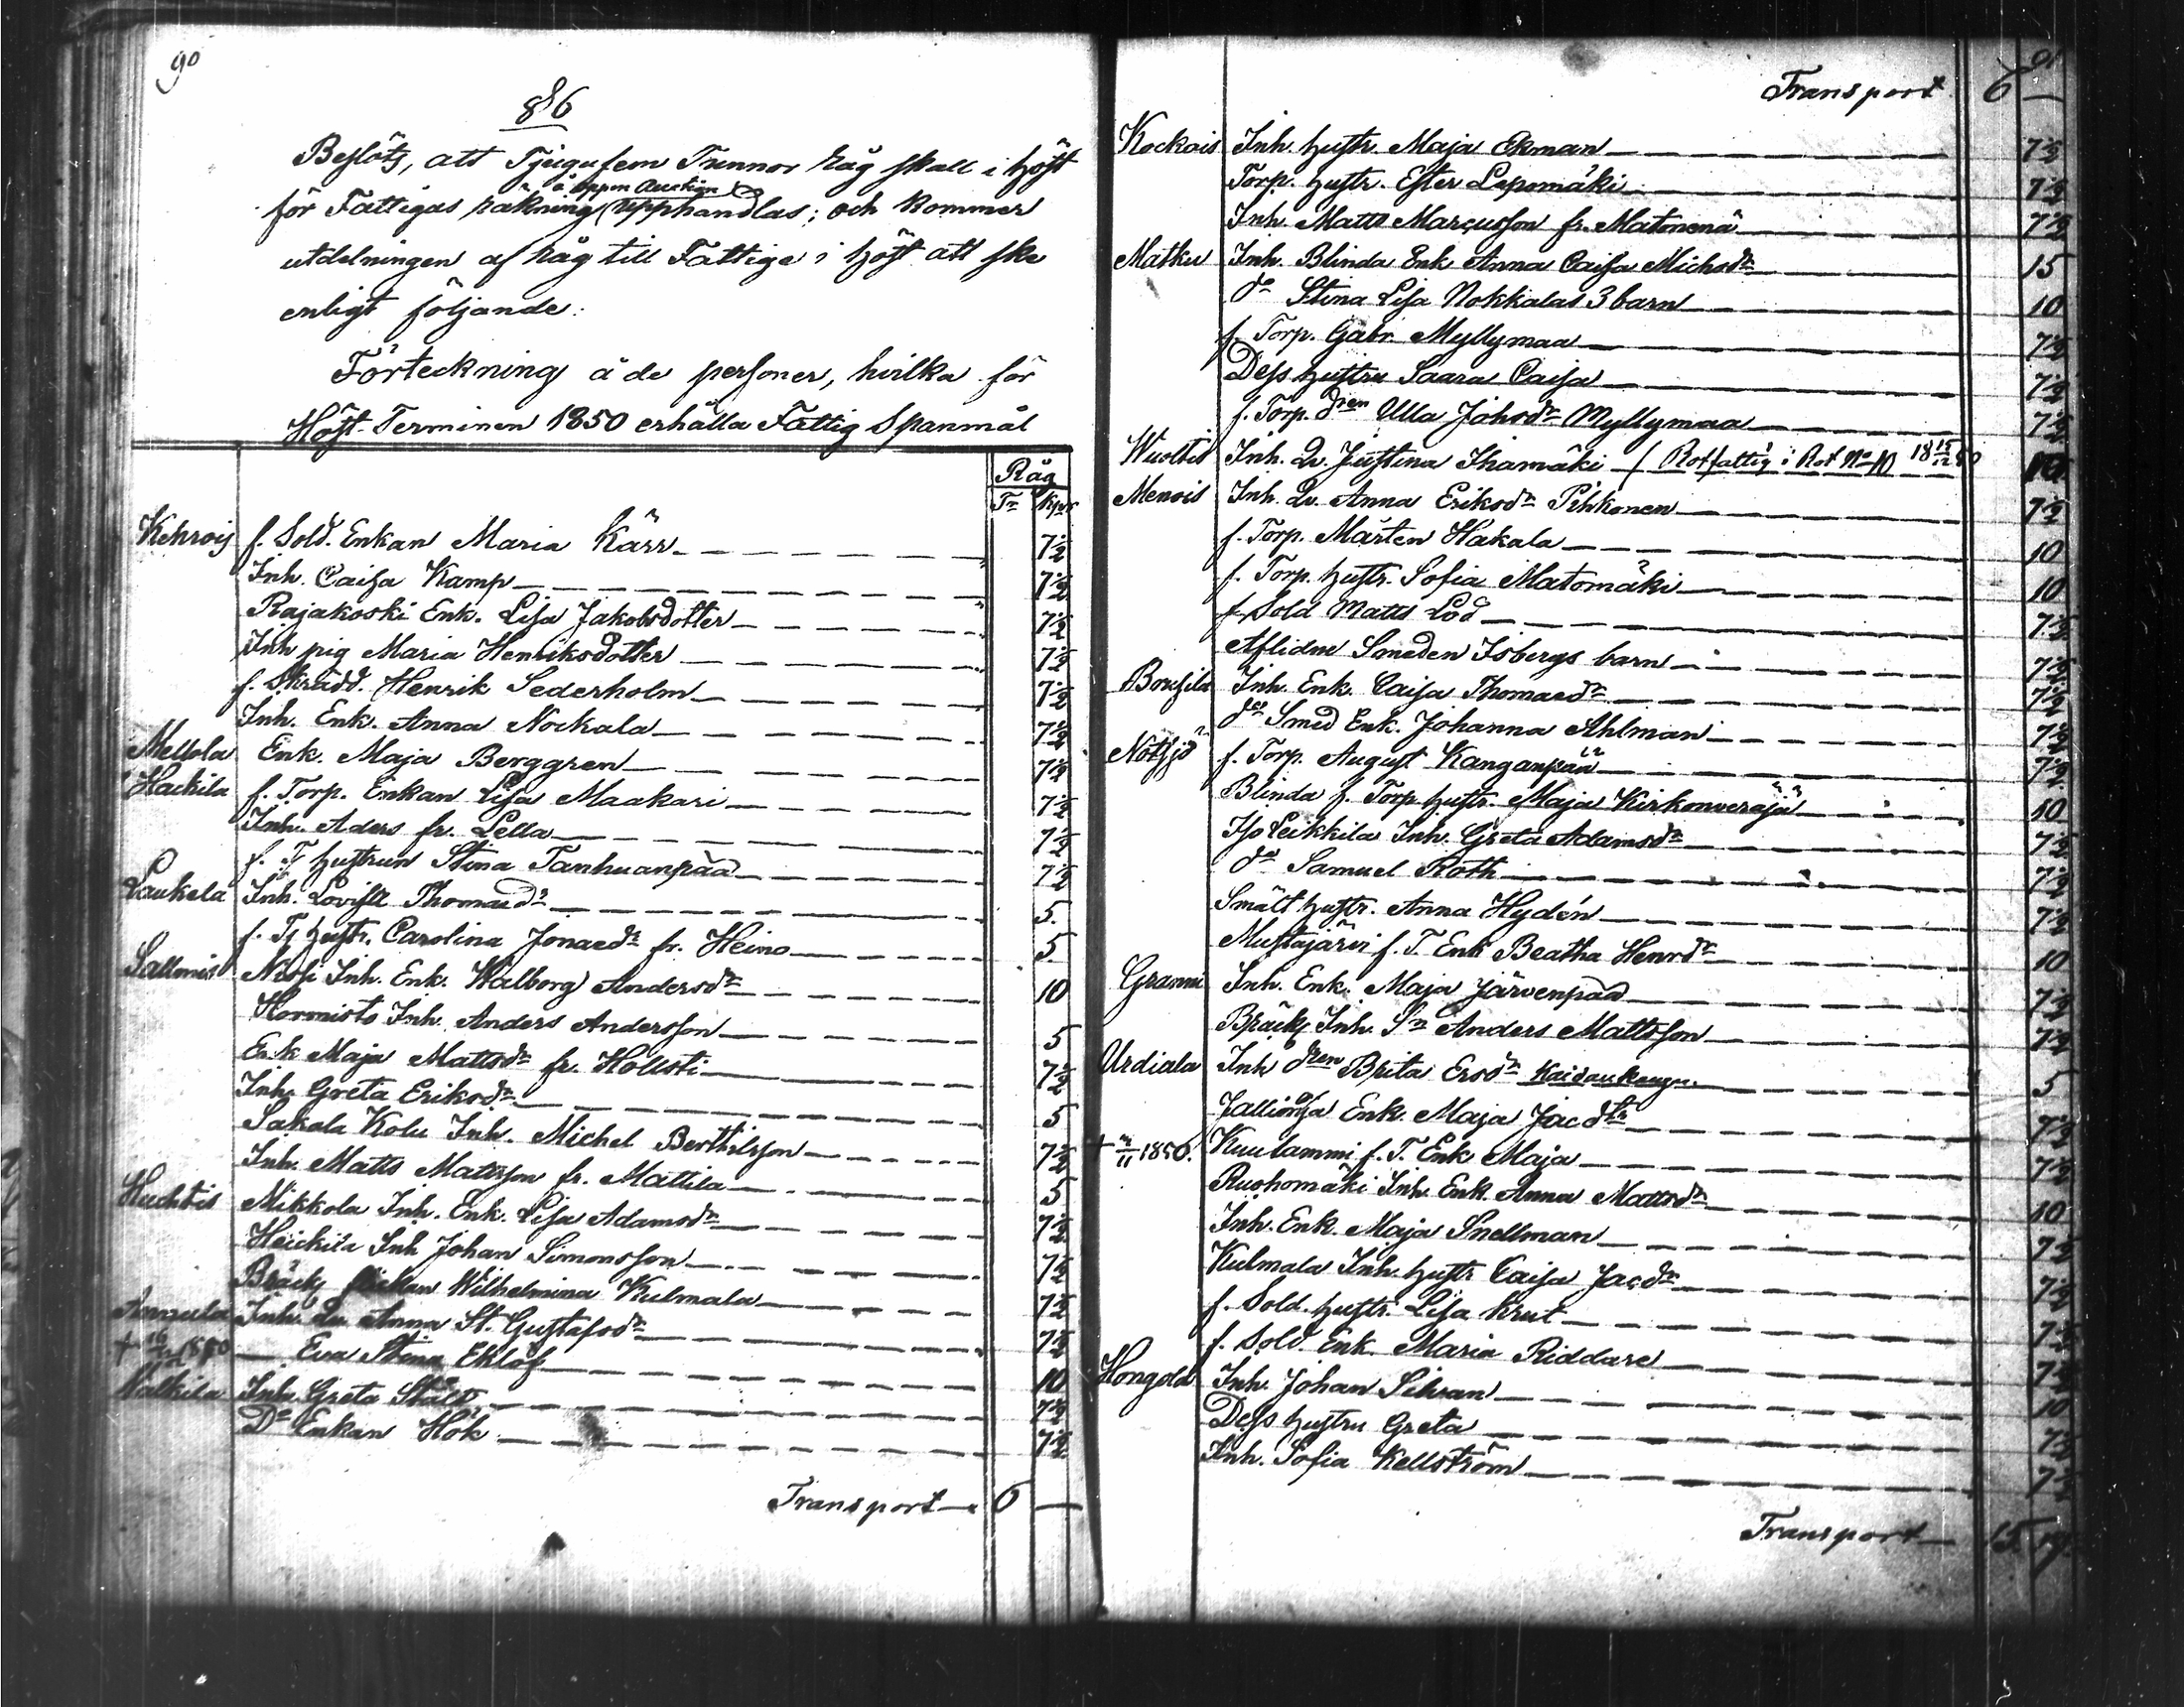 90
§ 6
Beslöts, att Tjugufem Tunnor Råg skall i höst
för Fattigas räkning (å öppen Auction) upphandlas; och kommer
utdelningen af Råg till Fattige i höst att ske
enligt följande:
Förteckning å de personer, hvilka för
Höst-Terminen 1850 erhålla Fattig Spanmål
Råg
Tr Kpr
Kehrois f. Sold. Enkan Maria Kärr 7½
Inh. Caisa Kamp 7½
Rajakoski Enk. Lisa Jakobsdotter 7½
Inh pig Maria Henriksdotter 7½
f. Skrädd. Henrik Sederholm 7½
Inh. Enk. Anna Nockala 7½
Mellola Enk. Maja Berggren 7½
Hackila f. Torp. Enkan Lisa Maakari 7½
Inh. Aders fr. Lella 7½
f. Tj hustrun Stina Tanhuanpää 7½
Laukela Inh. Lovisa Thomasdr 5
f. Tj hustr. Carolina Jonaedr fr. Heino 5
Sallmis Inh. Enk. Walborg Andersdr 10
Hormisto Inh. Anders Andersson 5
Enk Maja Mattsdr fr. Hollsti 7½
Inh. Greta Eriksdr 5
Sakala Kolu Inh. Michel Berthilsson 7½
Inh. Matts Mattsson fr. Mattila 5
Huchtis Mikkola Inh. Enk. Lisa Adamsdr 7½
Heickilä Inh Johan Simonsson 7½
Bräckl flickan Wilhelmina Kulmala 7½
Annula Inh. Qv. Anna St. Gustafsdr 7½
+ 1850 Eva Stina Eklöf 10
Nalkila Inh. Greta Stålt 7½
Do Enkan Hök 7½
Transport 6 —
91
Transport 6 —
Kockois Inh. hustr. Maja Ekman 7½
Torp. hustr. Ester Lepomäki 7½
Inh. Matts Marcusson fr. Matonenä 7½
Matku Inh. Blinda Enk Anna Caisa Michsdr 15
do Stina Lisa Nokkalas 3 barn 10
f. Torp. Gabr. Myllymaa 7½
Dess hustru Saara Caisa 7½
f. Torp. dren Ulla Johsdr Myllymaa 7½
Wuoltis Inh. Qv. Justina Ihamäki (Rotfattig i Rot No 10 18 15/12 50 10
Menois Inh. Qv. Anna Eriksdr Pihkonen 7½
f. Torp. Mårten Hakala 10
f. Torp. hustr. Sofia Matomäki 10
f. Sold Matts Lod 7½
Aflidne Smeden Isbergs barn 7½
Inh. Enk. Caisa Thomasdr 7½
do Smed Enk. Johanna Ahlman 7½
Nötsjö f. Torp. August Kanganpää 7½
Blinda f. Torp hustr. Maja Kirkonveräjä 10
Iso Leikkila Inh. Greta Adamsdr 7½
do Samuel Roth 7½
Smält hustr. Anna Hydén 7½
Mustajärvi f. T. Enk Beatha Henrdr 10
Grannu Inh. Enk. Maja Järvenpää 7½
Bräckl. Inh. Sn Anders Mattsson 7½
Urdiala Inh dren Brita Ersdr 5
Enk. Maja Jacdtr 7½
+ 11 1850. Kuulammi f. T. Enk Maja 7½
Ruohomäki Inh. Enk. Anna Mattsdr 10
Inh. Enk. Maja Snellman 7½
Kulmala Inh. hustr Caisa Jacdr 7½
f. Sold. hustr. Lisa Krut 7½
f. Sold. Enk. Maria Riddare 7½
Hongola Inh. Johan Sihran 10
Dess hustru Greta 7½
Inh. Sofia Kellström 7½
Transport 15. 17.